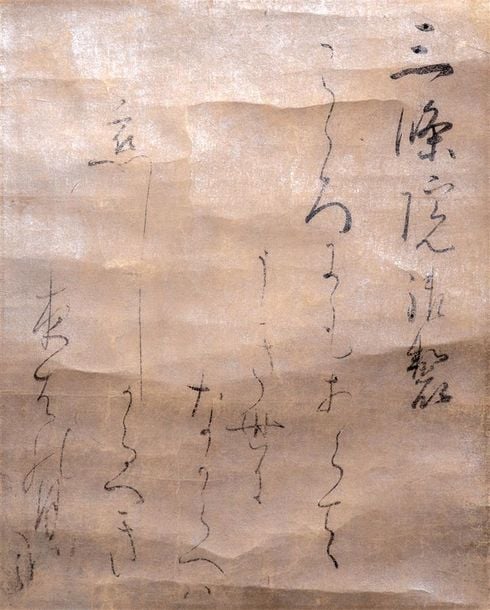 三條院御製
こゝろにもあらて
うき世に
なからへハ
恋しかるへき
夜はの月かな